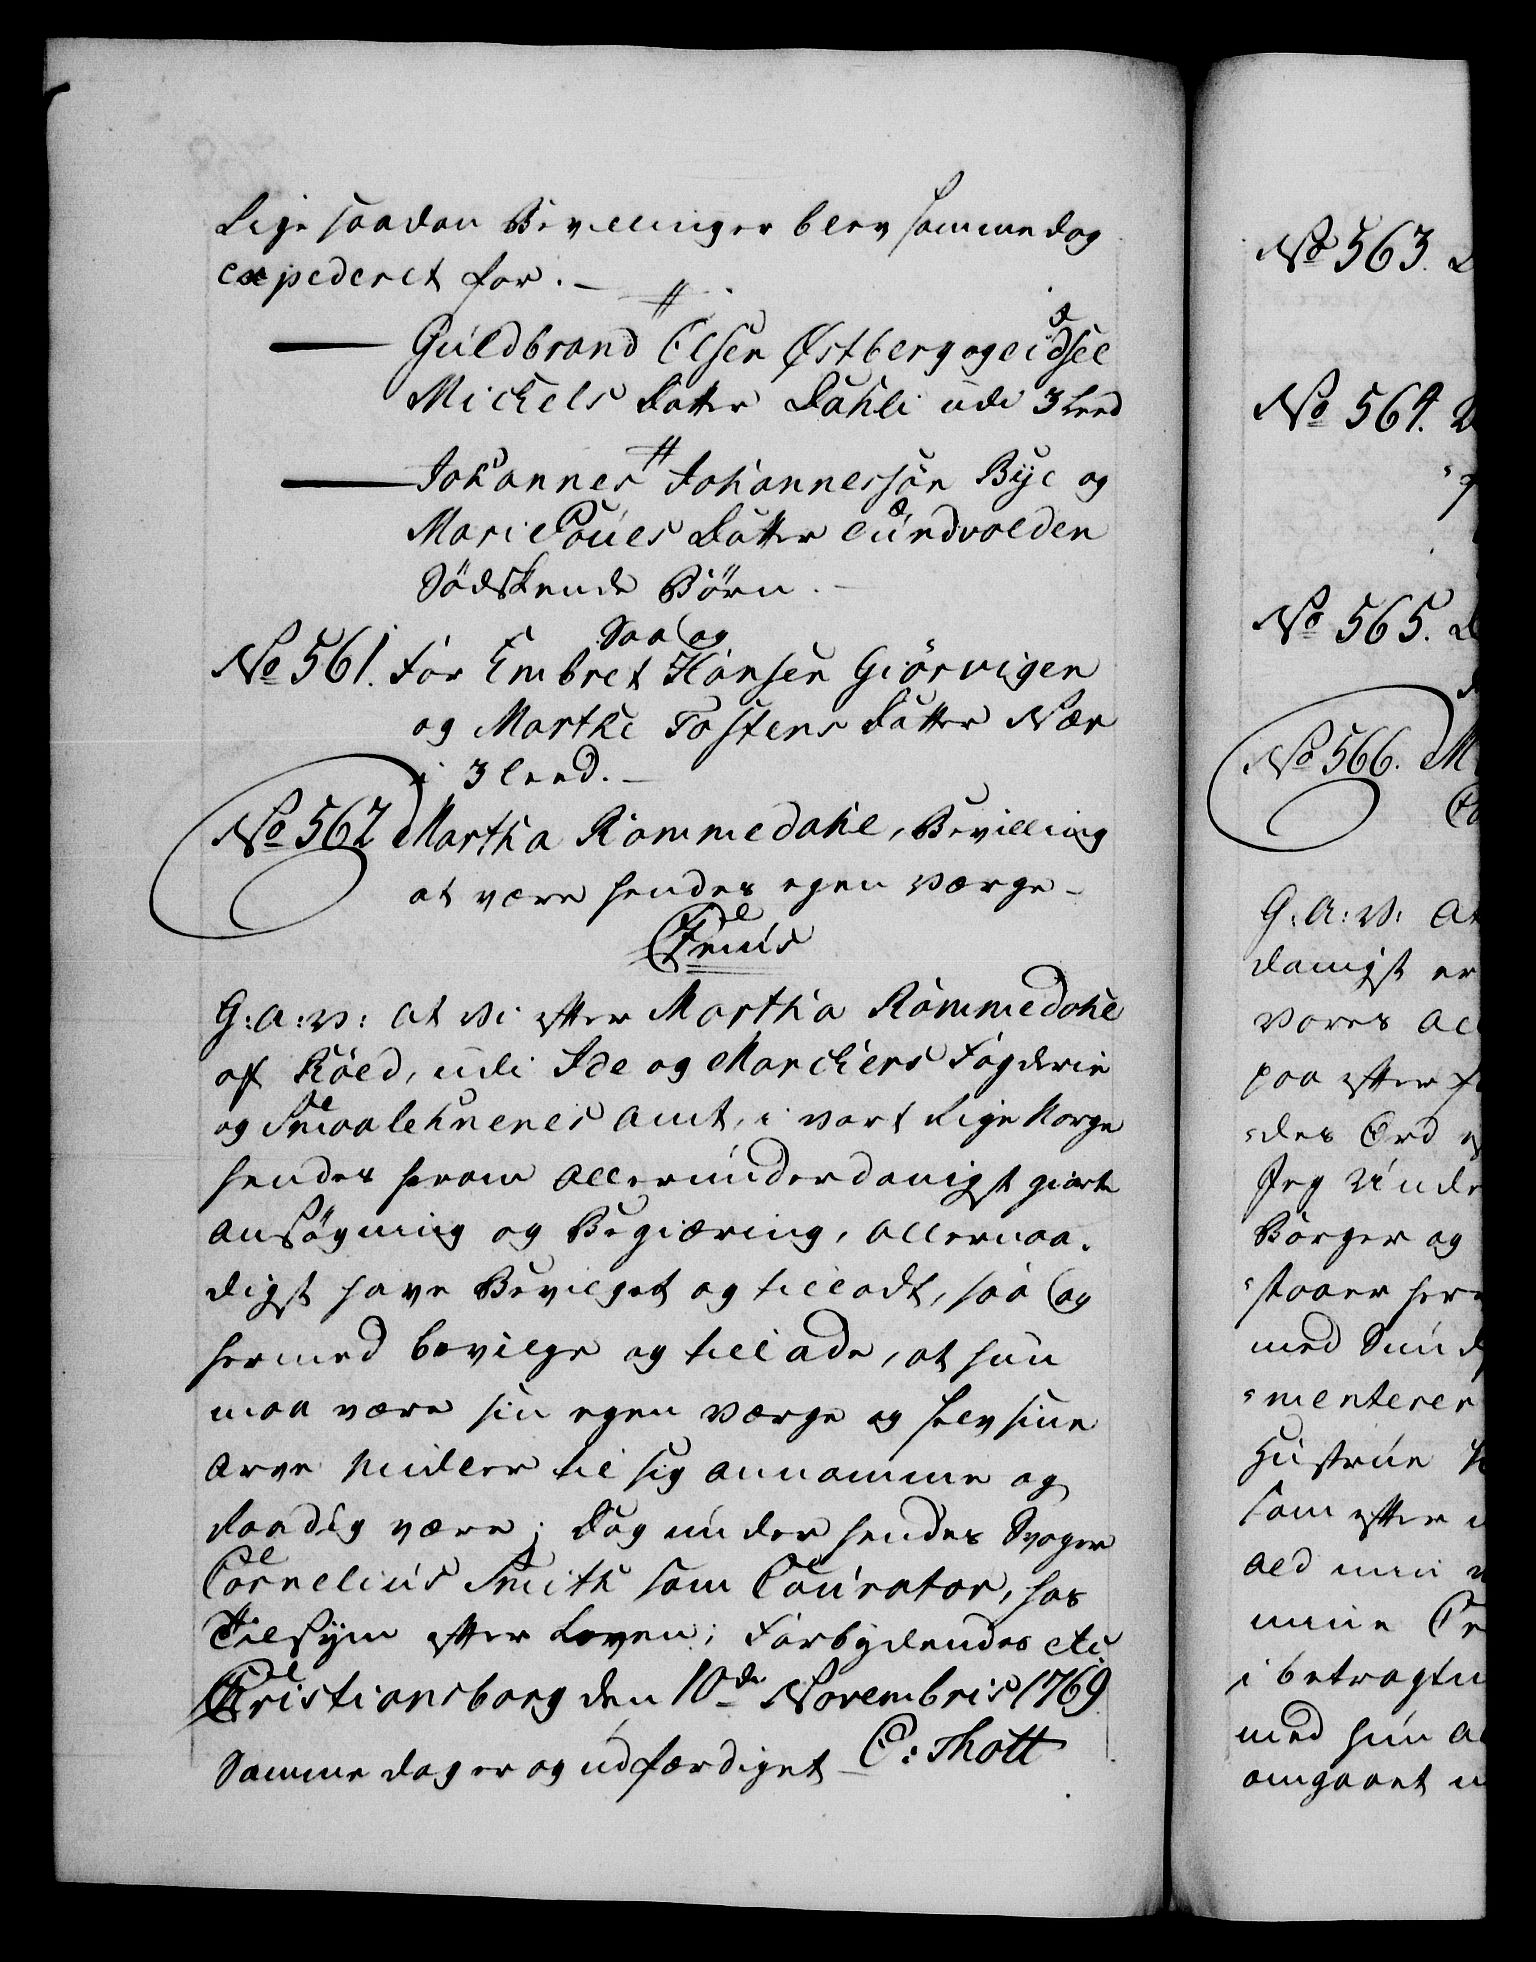 Lige saadan Bevillinger blev samme dag
expederet for. —
— Guldbrand Olsen Østberg og Sidsel
Michels Datter Dahli udi 3 Leed
— Johannes Johannessøn Bye og
Mari Pouls Datter Sundvolden
Södskende Börn. —
No 561. for Embret Hansen Giörvigen
Saa og
og Marthe Tostens Datter Nær
i 3 Leed. —
No 562 Martha Rommedahl, Bevilling
at være hendes egen værge —
G: A: V: At Vi efter Martha Rommedahl
af Röed, udi Ide og Marckers Fogderie
og Smaalehnenes Amt, i vort Rige Norge
hendes herom allerunderdanigst giorte
Ansøgning og Begiæring, allernaa-
digst have Bevilget og tilladt, saa og
hermed bevilge og tillade, at hun
maa være sin egen Værge og selv sine
Arve Midler til sig annamme og
raadig være; dog under hendes Svoger
Cornelius Smith som Courator, hos
Tilsÿn efter Loven; Forbydendes etc:
Christiansborg den 10de Novembris 1769
Samme dag er og udfærdiget C: Thott
No 563.
No 564.
No 565.
No 566.
G: A: V: At
danigst er
vores
paa efter
=des Ord
Jeg Unde
Borger og
=staaer her
med
=menterer
Hustrue
som efter
ald min
mine
i betragtn
med hun
omgaaet